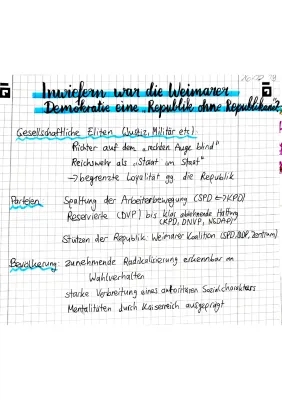 Inwiefern war die Weimarer
Demokratie eine „Republik ohne Republikaner"?
Gesellschaftliche Eliten (Justiz, Militär etc.)
Richter auf dem „rechten Auge blind"
Reichswehr als „Staat im Staat"
→ begrenzte Loyalität gg. die Republik
Parteien Spaltung der Arbeiterbewegung (SPD ↔ KPD)
Reservierte (DVP) bis klar ablehnende Haltung
(KPD, DNVP, NSDAP)
Stützen der Republik: Weimarer Koalition (SPD, DDP, Zentrum)
Bevölkerung: zunehmende Radikalisierung erkennbar im
Wahlverhalten
starke Verbreitung eines autoritären Sozialcharakters
Mentalitäten durch Kaiserreich ausgeprägt